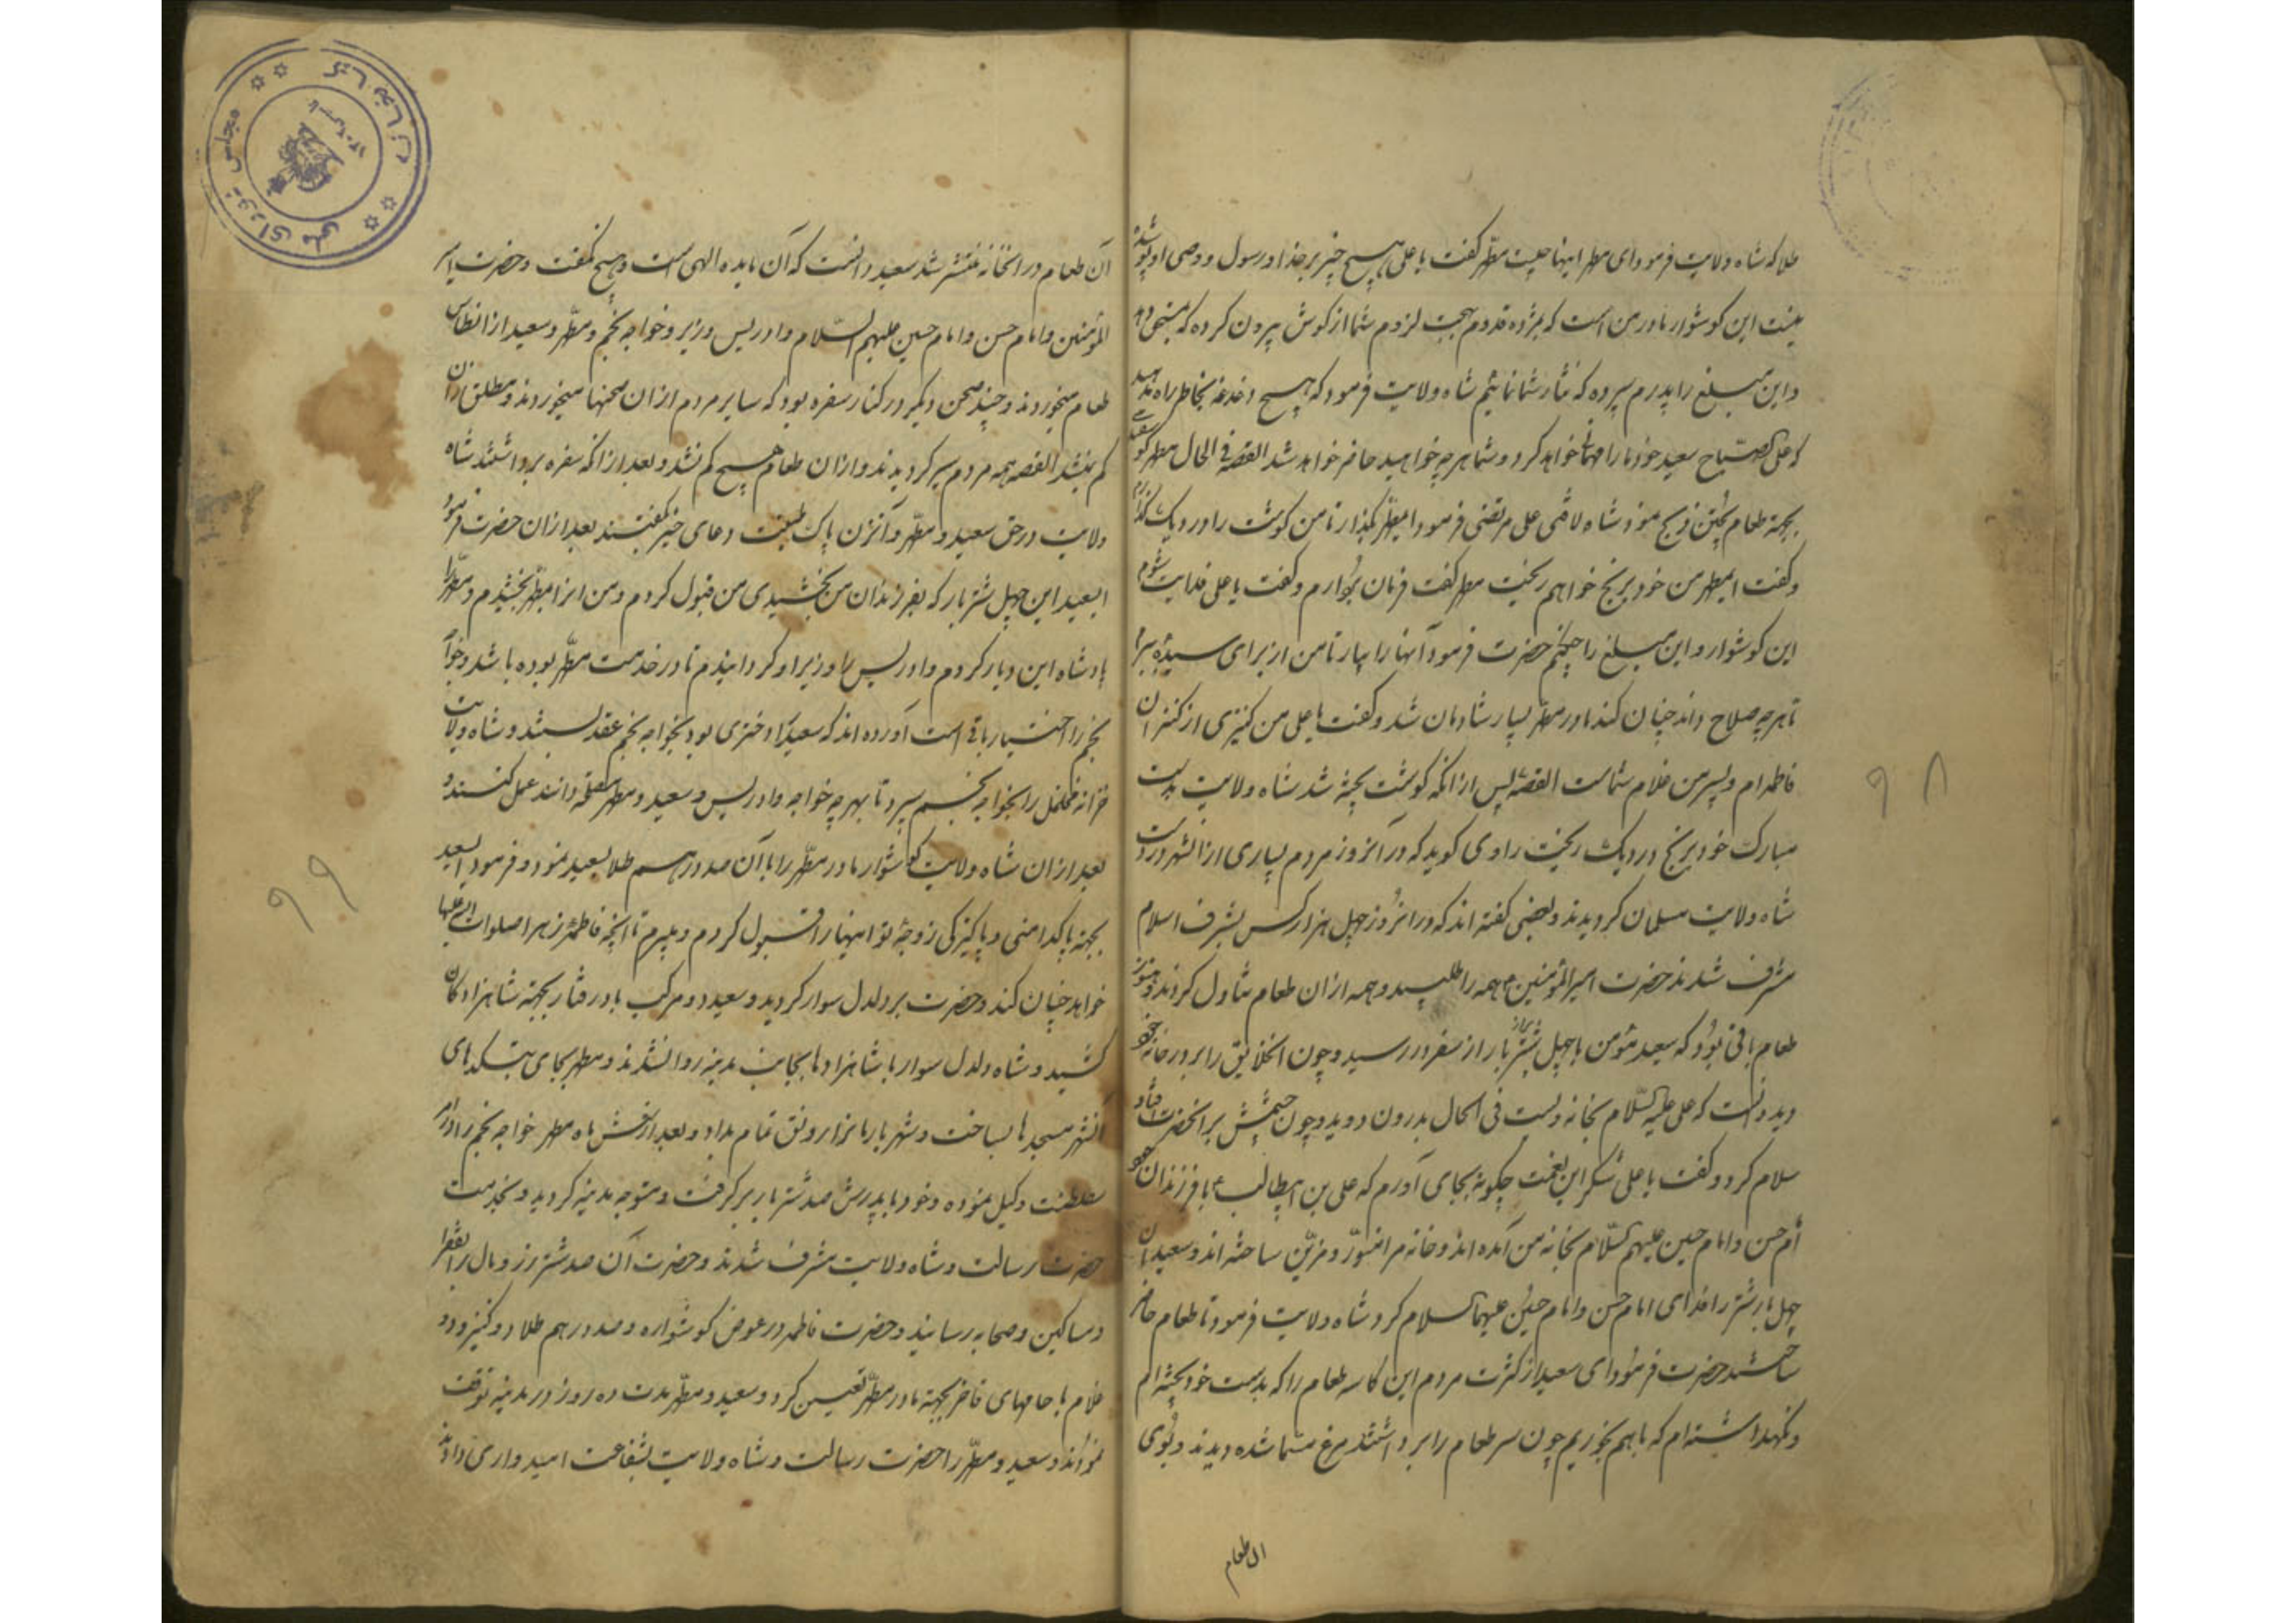 طلا که شاه ولایت فرمود ای مطهر اینها چیست مطهّر گفت یا علی هیچ چیز بر خدا و رسول و وصی او پوشیده
نیست این گوشوار مادر من است که بمژده قدوم بهجت لزوم شما از گوش بیرون کرده که
و این مبلغ را پدرم سپرده که نثار شما نمائیم شاه ولایت فرمود که هیچ دغدغه بخاطر راه مدهید
که علی الصّباح سعید خود ما را مهمانی خواهد کرد و شما هر چه خواهید حاضر خواهد شد القصه فی الحال مطهر
بجهة طعام پختن ذبح نمود شاه لافتی علی مرتضی فرمود ایمطهّر بگذار تا من گوشت را در دیک
و گفت ایمطهر من خود برنج خواهم ریخت مطهر گفت فرمان بُردارم و گفت یا علی فدایت شوم
این گوشوار و این مبلغ را چکنم حضرت فرمود آنها را بیار تا من از برای سیده ببرم
تا هر چه صلاح داند چنان کند مادر مطهّر بسیار شادمان شد و گفت یا علی من کنیزی از کنیزان
فاطمه ام و پسر من غلام شماست القصّه پس از آنکه گوشت پخته شد شاه ولایت بدست
مبارک خود برنج در دیک ریخت راوی گوید که در آنروز مردم بسیاری از آنشهر در دست
شاه ولایت مسلمان گردیدند و بعضی گفته اند که در آنرُوز چهل هزار کس بشرف اسلام
مشرف شدند حضرت امیر المؤمنین ع همه را طلبید و همه از آن طعام تناول کردند و هنوز
طعام باقی بُود که سعید مؤمن با چهل شتر بار از سفر در رسید و چون آنخلایق را بر در خانه خود
دید دانست که علی علیه السّلام بخانه ویست فی الحال بدرون دوید و چون چشمش بر آنحضرت افتاد
سلام کرد و گفت یا علی شکر این نعمت چگونه بجای آورم که علی بن ابیطالب ع با فرزندان خود
اُم حسن و امام حسین علیهم السّلام بخانه من آمده اند و خانه مرا منوّر و مزیّن ساخته اند و سعید آن
چهل بار شتر را فدای امام حسن و امام حسین علیهما السلام کرد شاه ولایت فرمود تا طعام حاضر
ساختند حضرت فرمُود ای سعید از کثرت مردم این کاسه طعام را که بدست خود پخته ام
و نگهداشته ام که با هم بخوریم چون سر طعام را برداشتند مرغ مسما شده دیدند و بُوی
ان طعام
۹۸
آن طعام در آنخانه منتشر شد سعید دانست که آن مایده الهی است و هیچ نگفت و حضرت امیر
المؤمنین و امام حسن و امام حسین علیهم السّلام و ادریس وزیر و خواجه نجم و مطهّر و سعید از آنطاس
طعام میخوردند و چند صحن دیگر در کنار سفره بود که سایر مردم از آن صحنها میخوردند و مطلق از آن
کم نمیشد القصه همه مردم سیر گردیدند و از آن طعام هیچ کم نشد و بعد از آنکه سفره برداشتند شاه
ولایت در حق سعید و مطهّر و آنزن پاک طینت دعای خیر گفتند بعد از آن حضرت فرمود
ایسعید این چهل شتر بار که بفرزندان من بخشیدی من قبول کردم و من آنرا بمطهّر بخشیدم و مطهّر را
پادشاه این دیار کردم و ادریس را وزیر او گردانیدم تا در خدمت مطهّر بوده باشد و خواجه
نجم را اختیار باقی است آورده اند که سعید را دختری بود بخواجه نجم عقد بستند و شاه ولایت
خزانه را بخواجه نجم سپرد تا بهر چه خواجه و ادریس و سعید و مطهر مصلحة دانند عمل کنند و
بعد از آن شاه ولایت گوشوار مادر مطهّر را با آن صد درهم طلا بسعید نمود و فرمود ایسعید
بجهة پاکدامنی و پاکیزگی زوجهٔ تو اینها را قبول کردم و میبرم تا آنچه فاطمهٔ زهرا صلوات الله علیها
خواهد چنان کند و حضرت بر دلدل سوار گردید و سعید دو مرکب باد رفتار بجهة شاهزادگان
کشید و شاه دلدل سوار با شاهزادها بجانب مدینه روان شدند و مطهر بجای بتکدهای
آنشهر مسجدها بساخت و شهر بار را رونق تمام بداد و بعد از شش ماه مطهر خواجه نجم را در امر
سلطنت وکیل نموده و خود با پدرش صد شتر بار زر گرفت و متوجه مدینه گردید و بخدمت
حضرت رسالت و شاه ولایت مشرف شدند و حضرت آن صد شتر زر و مال را بفقرا
و مساکین و صحابه رسانید و حضرت فاطمه در عوض گوشواره و صد درهم طلا دو کنیز و دو
غلام با جامهای فاخر بجهة مادر مطهّر تعیین کرد و سعید و مطهّر مدت ده روز در مدینه توقف
نمودند و سعید و مطهّر را حضرت رسالت و شاه ولایت بشفاعت امیدواری دادند
۹۹
مجلس شورای ملی
کتابخانه